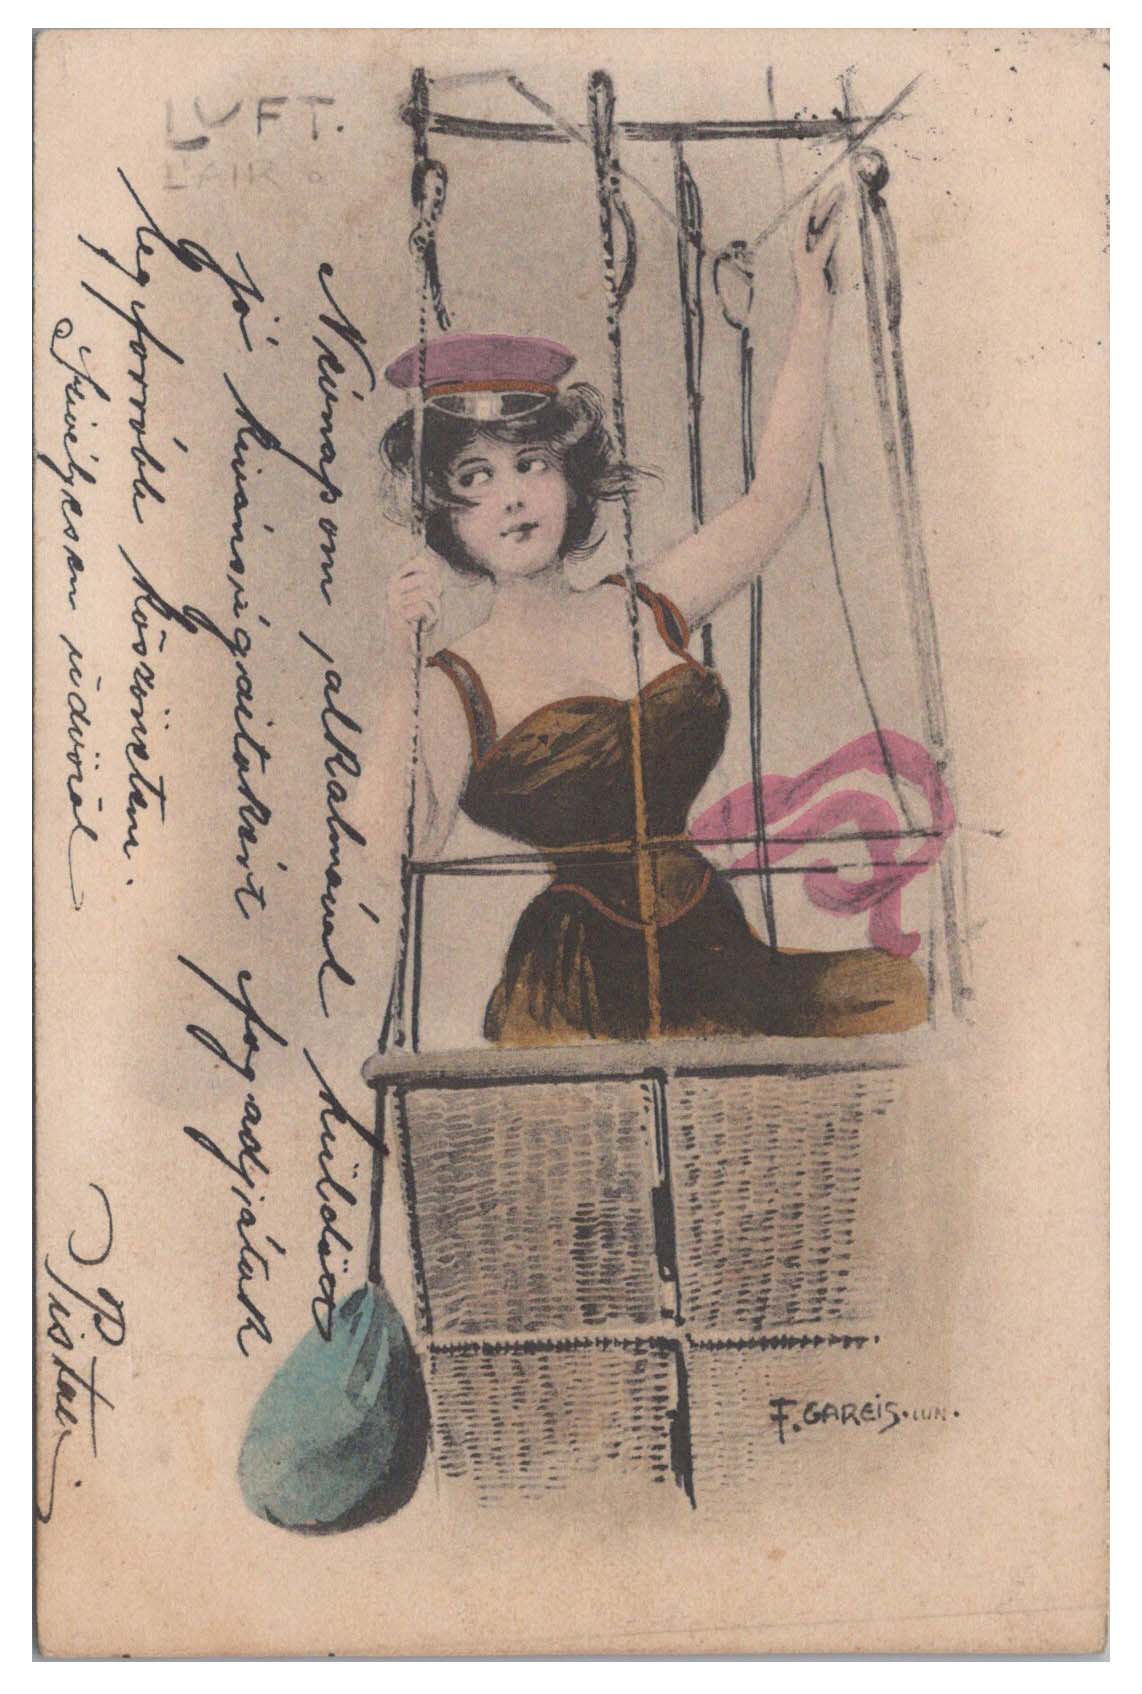 LUFT.
L'AIR
Névnapom alkalmával küldött
jó kivánságaitokért fogadjátok
legforróbb köszönetem.
Szivélyesen üdvözöl
Pista
F. GAREIS. IUN.